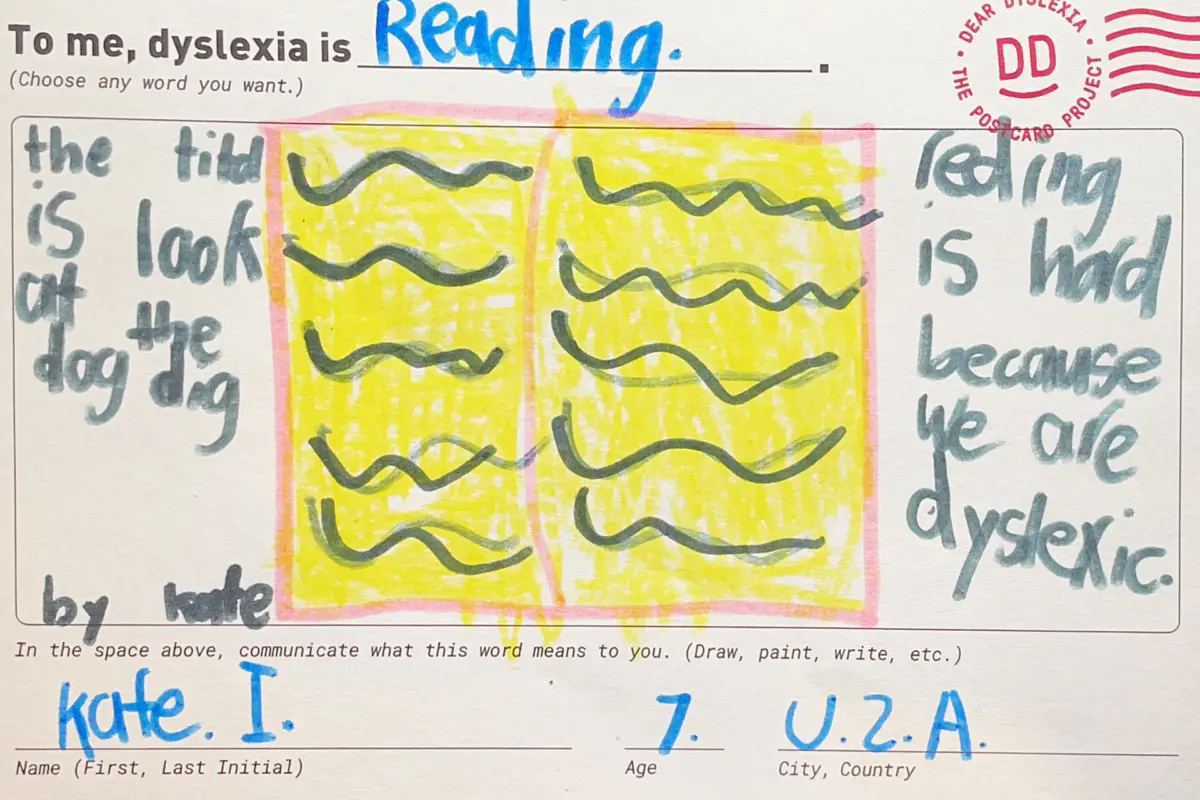 To me, dyslexia is Reading.
(Choose any word you want.)
DEAR DYSLEXIA · THE POSTCARD PROJECT ·
DD
the titd
is look
at the
dog dig
by kate
reding
is hard
because
we are
dyslexic.
In the space above, communicate what this word means to you. (Draw, paint, write, etc.)
Kate. I.
7.
U.S.A.
Name (First, Last Initial)
Age
City, Country